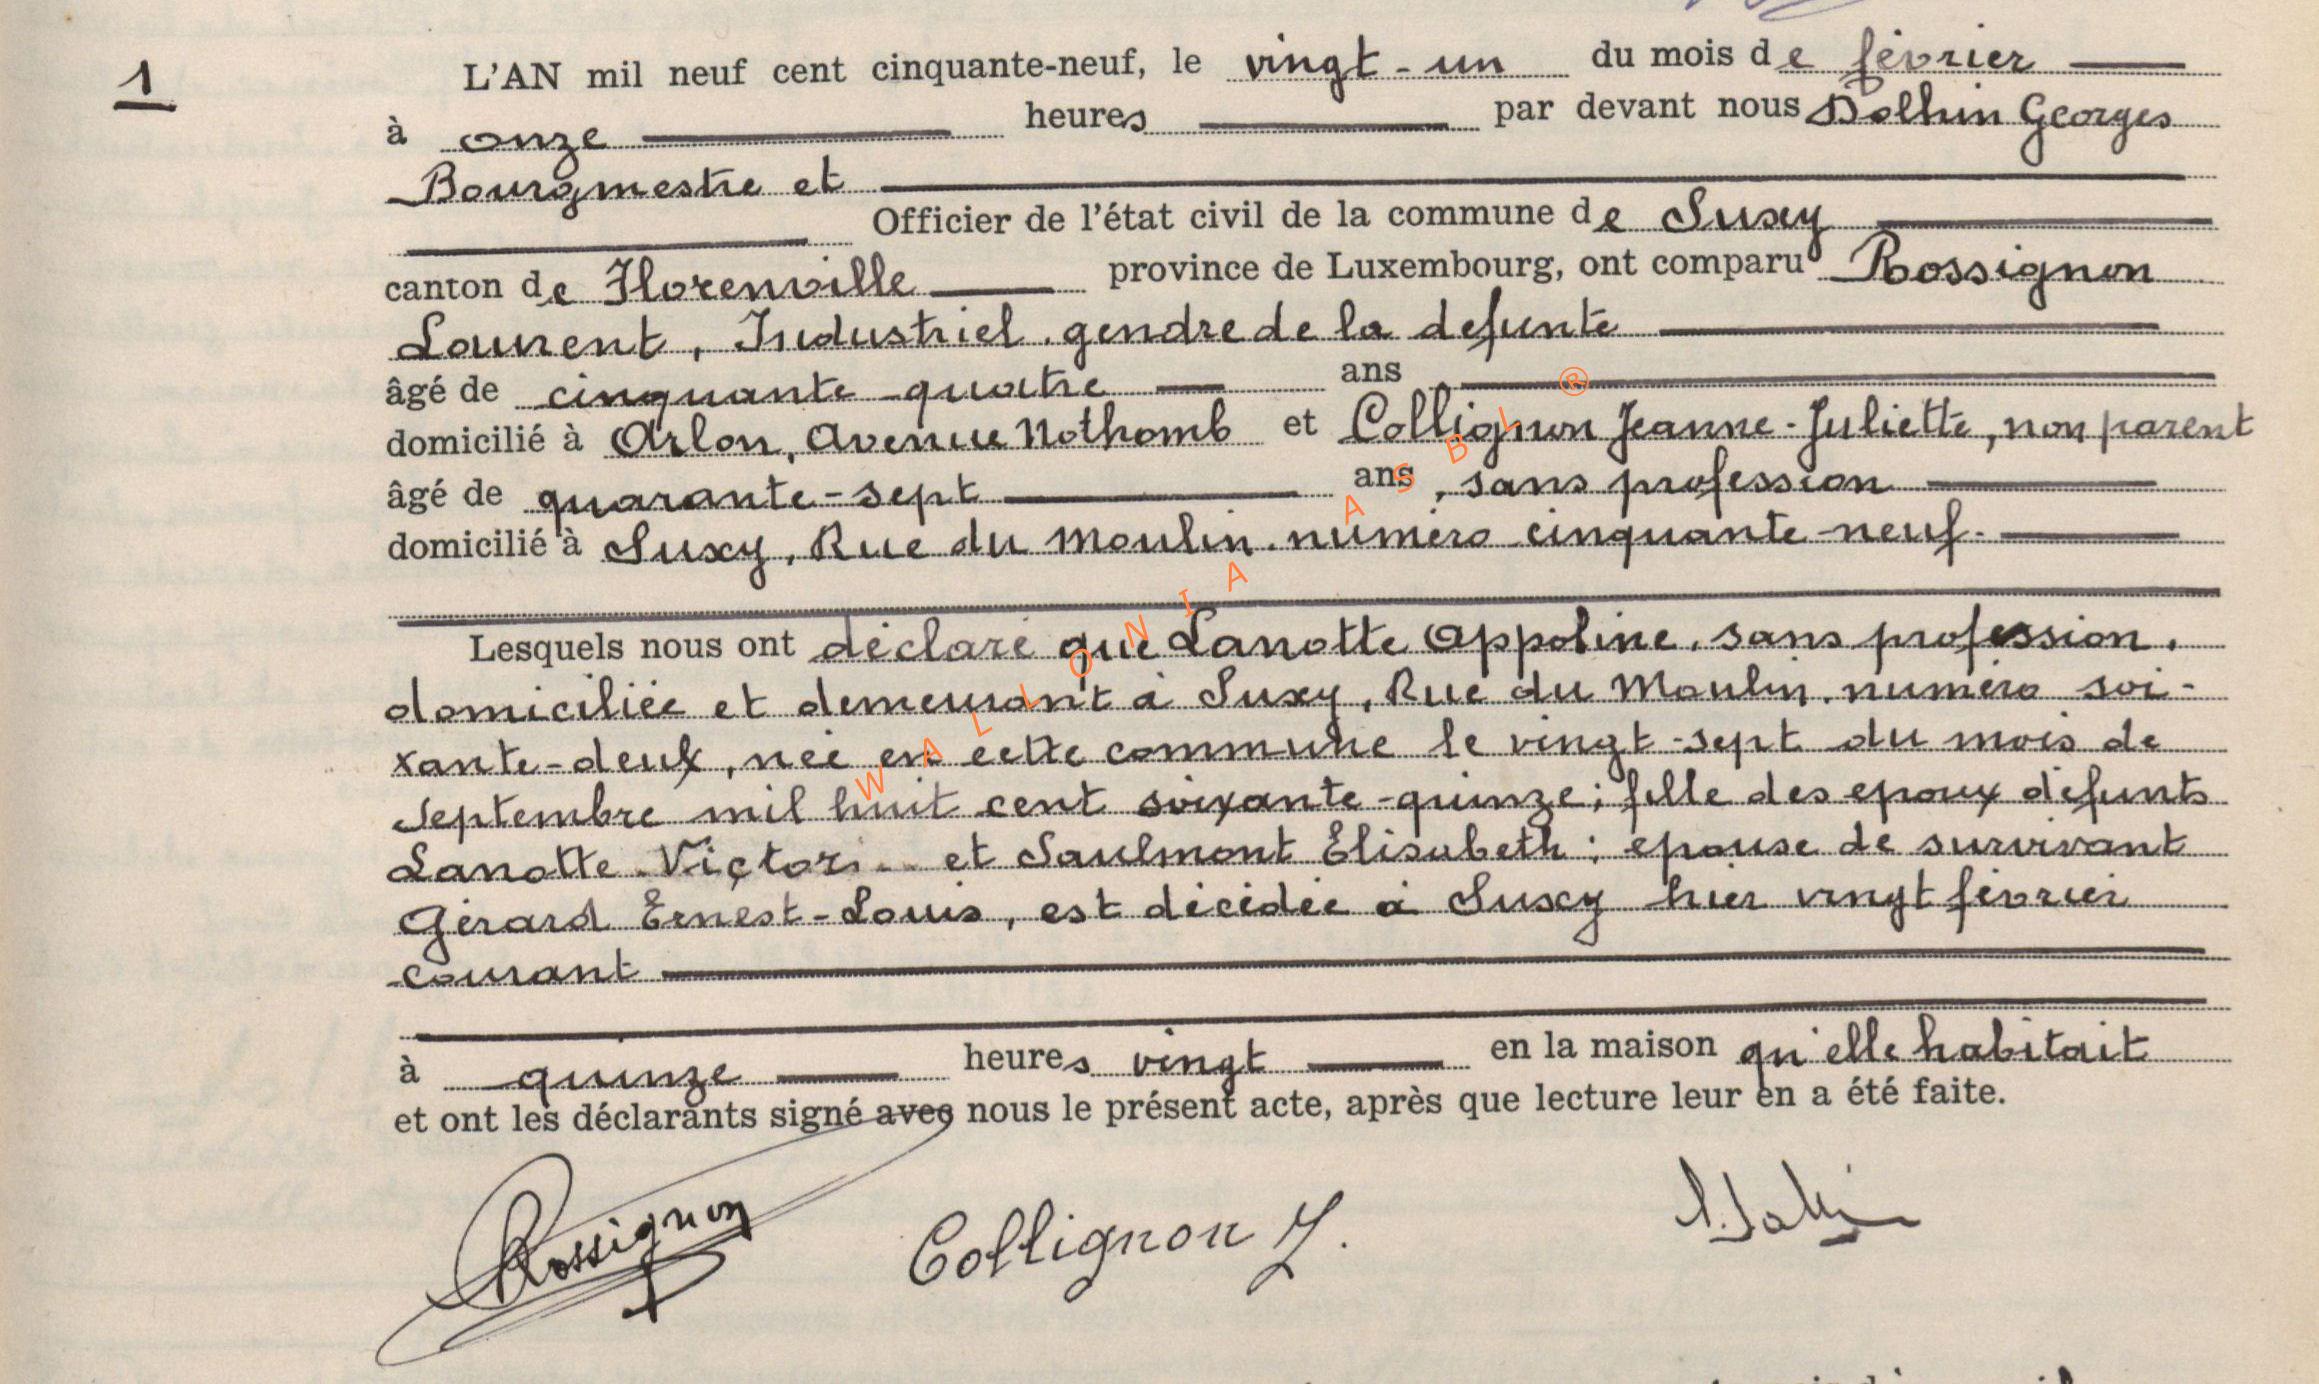 1
L'AN mil neuf cent cinquante-neuf, le vingt-un du mois de février
à onze heures par devant nous Dolhin Georges
Bourgmestre et
Officier de l'état civil de la commune de Suxy
canton de Florenville province de Luxembourg, ont comparu Rossignon
Laurent, Industriel, gendre de la defunte
âgé de cinquante-quatre ans
domicilié à Arlon, Avenue Nothomb et Collignon Jeanne-Juliette, non parent
âgé de quarante-sept ans, sans profession
domicilié à Suxy, Rue du Moulin, numéro cinquante-neuf.
Lesquels nous ont déclaré que Lanotte Appoline, sans profession,
domiciliée et demeurant à Suxy, Rue du Moulin, numéro soi-
xante-deux, née en cette commune le vingt-sept du mois de
Septembre mil huit cent soixante-quinze; fille des epoux défunts
Lanotte Victor et Saulmont Elisabeth; epouse de survivant
Gérard Ernest-Louis, est décédée à Suxy hier vingt février
courant
à quinze heures vingt en la maison qu'elle habitait
et ont les déclarants signé avec nous le présent acte, après que lecture leur en a été faite.
Rossignon Collignon J.
WALLONIA ASBL ®